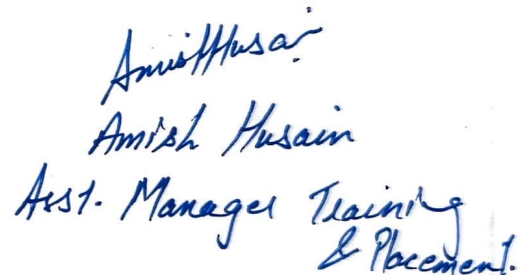 Amish Husain
Amish Husain
Asst. Manager Training
& Placement.